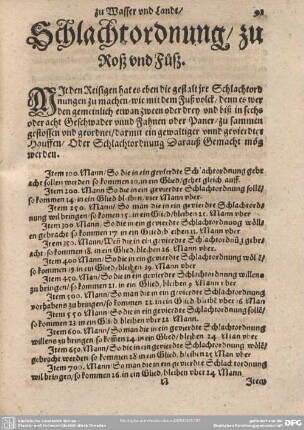 zu Wasser vnd Landt/ 91
Schlachtordnung/ zu
Roß vnd Füß.
MIt den Reisigen hat es eben die gestalt jre Schlachtord
nungen zu machen/ wie mit dem Fußvolck/ denn es wer
den gemeinlich etwan zween oder drey vnd biß in sechs
oder acht Geschwader vnnd Fahnen oder Paner/ zu sammen
gestossen vnd geordnet/ darmit ein gewaltiger vnnd gevierdter
Hauffen/ Oder Schlachtordnung Darauß Gemacht mög
werden.
Item 100. Mann/ So die in ein gevierdte Schlachtordnung gebr
acht sollen werden/ so kommen 10. in ein Glied/ gehet gleich auff.
Item 200. Mann/ So die in ein gevierdte Schlachtordnung solle/
so kommen 14. in ein Glied bleiben/ vier Mann vber.
Item 250. Mann/ So man die in ein gevierdte Schlachtordnung
wil bringen/ so komen 15. in ein Glied/ bleiben 25. Mann vber
Item 300. Mann/ So die in ein gevierdte Schlachtordnung wöll
en gebracht so kommen 17. in ein Glied/ bleiben 11. Mann vber.
Item 350. Mann/ Wen die in ein gevierdte Schlachtordnung gebr
acht/ so kommen 18. in ein Glied, bleiben 26. Mann vber.
Item 400. Mann/ So die in ein gevierdte Schlachtordnung wöll/
so kommen in ein Glied/ bleiben Mann vber.
Item 450 Man/ So die in ein gevierdte Schlachtordnung willens
zu bringen/ so kommen 21. in ein Glied, bleiben 9 Mann vber.
Item 500. Mann/ So man die in ein gevierdte Schlachtordnung
vorhabens zu bringen/ so kommen 22 in ein Glied/ bleibt vber 16 Man
Item 550 Mann/ So man die in ein gevierdte Schlachtordnung soll/
so kommen 23 in ein Glied bleiben vber 21 Mann.
Item 600. Mann/ So man die in ein gevierdte Schlachtordnung
willens zu bringen/ so komen 24. in ein Glied, bleibt 24. Mann vber.
Item 650. Mann/ So man die in ein gevierdte Schlachtordnung wöll/
gebracht werden/ so kommen in ein Glied bleiben 25 Mann vber
Item 700. Mann/ So man die in ein gevierdte Schlachtordnung
wil bringen/ so kommen 26. in ein Glied, bleiben vber 24. Mann.
Item